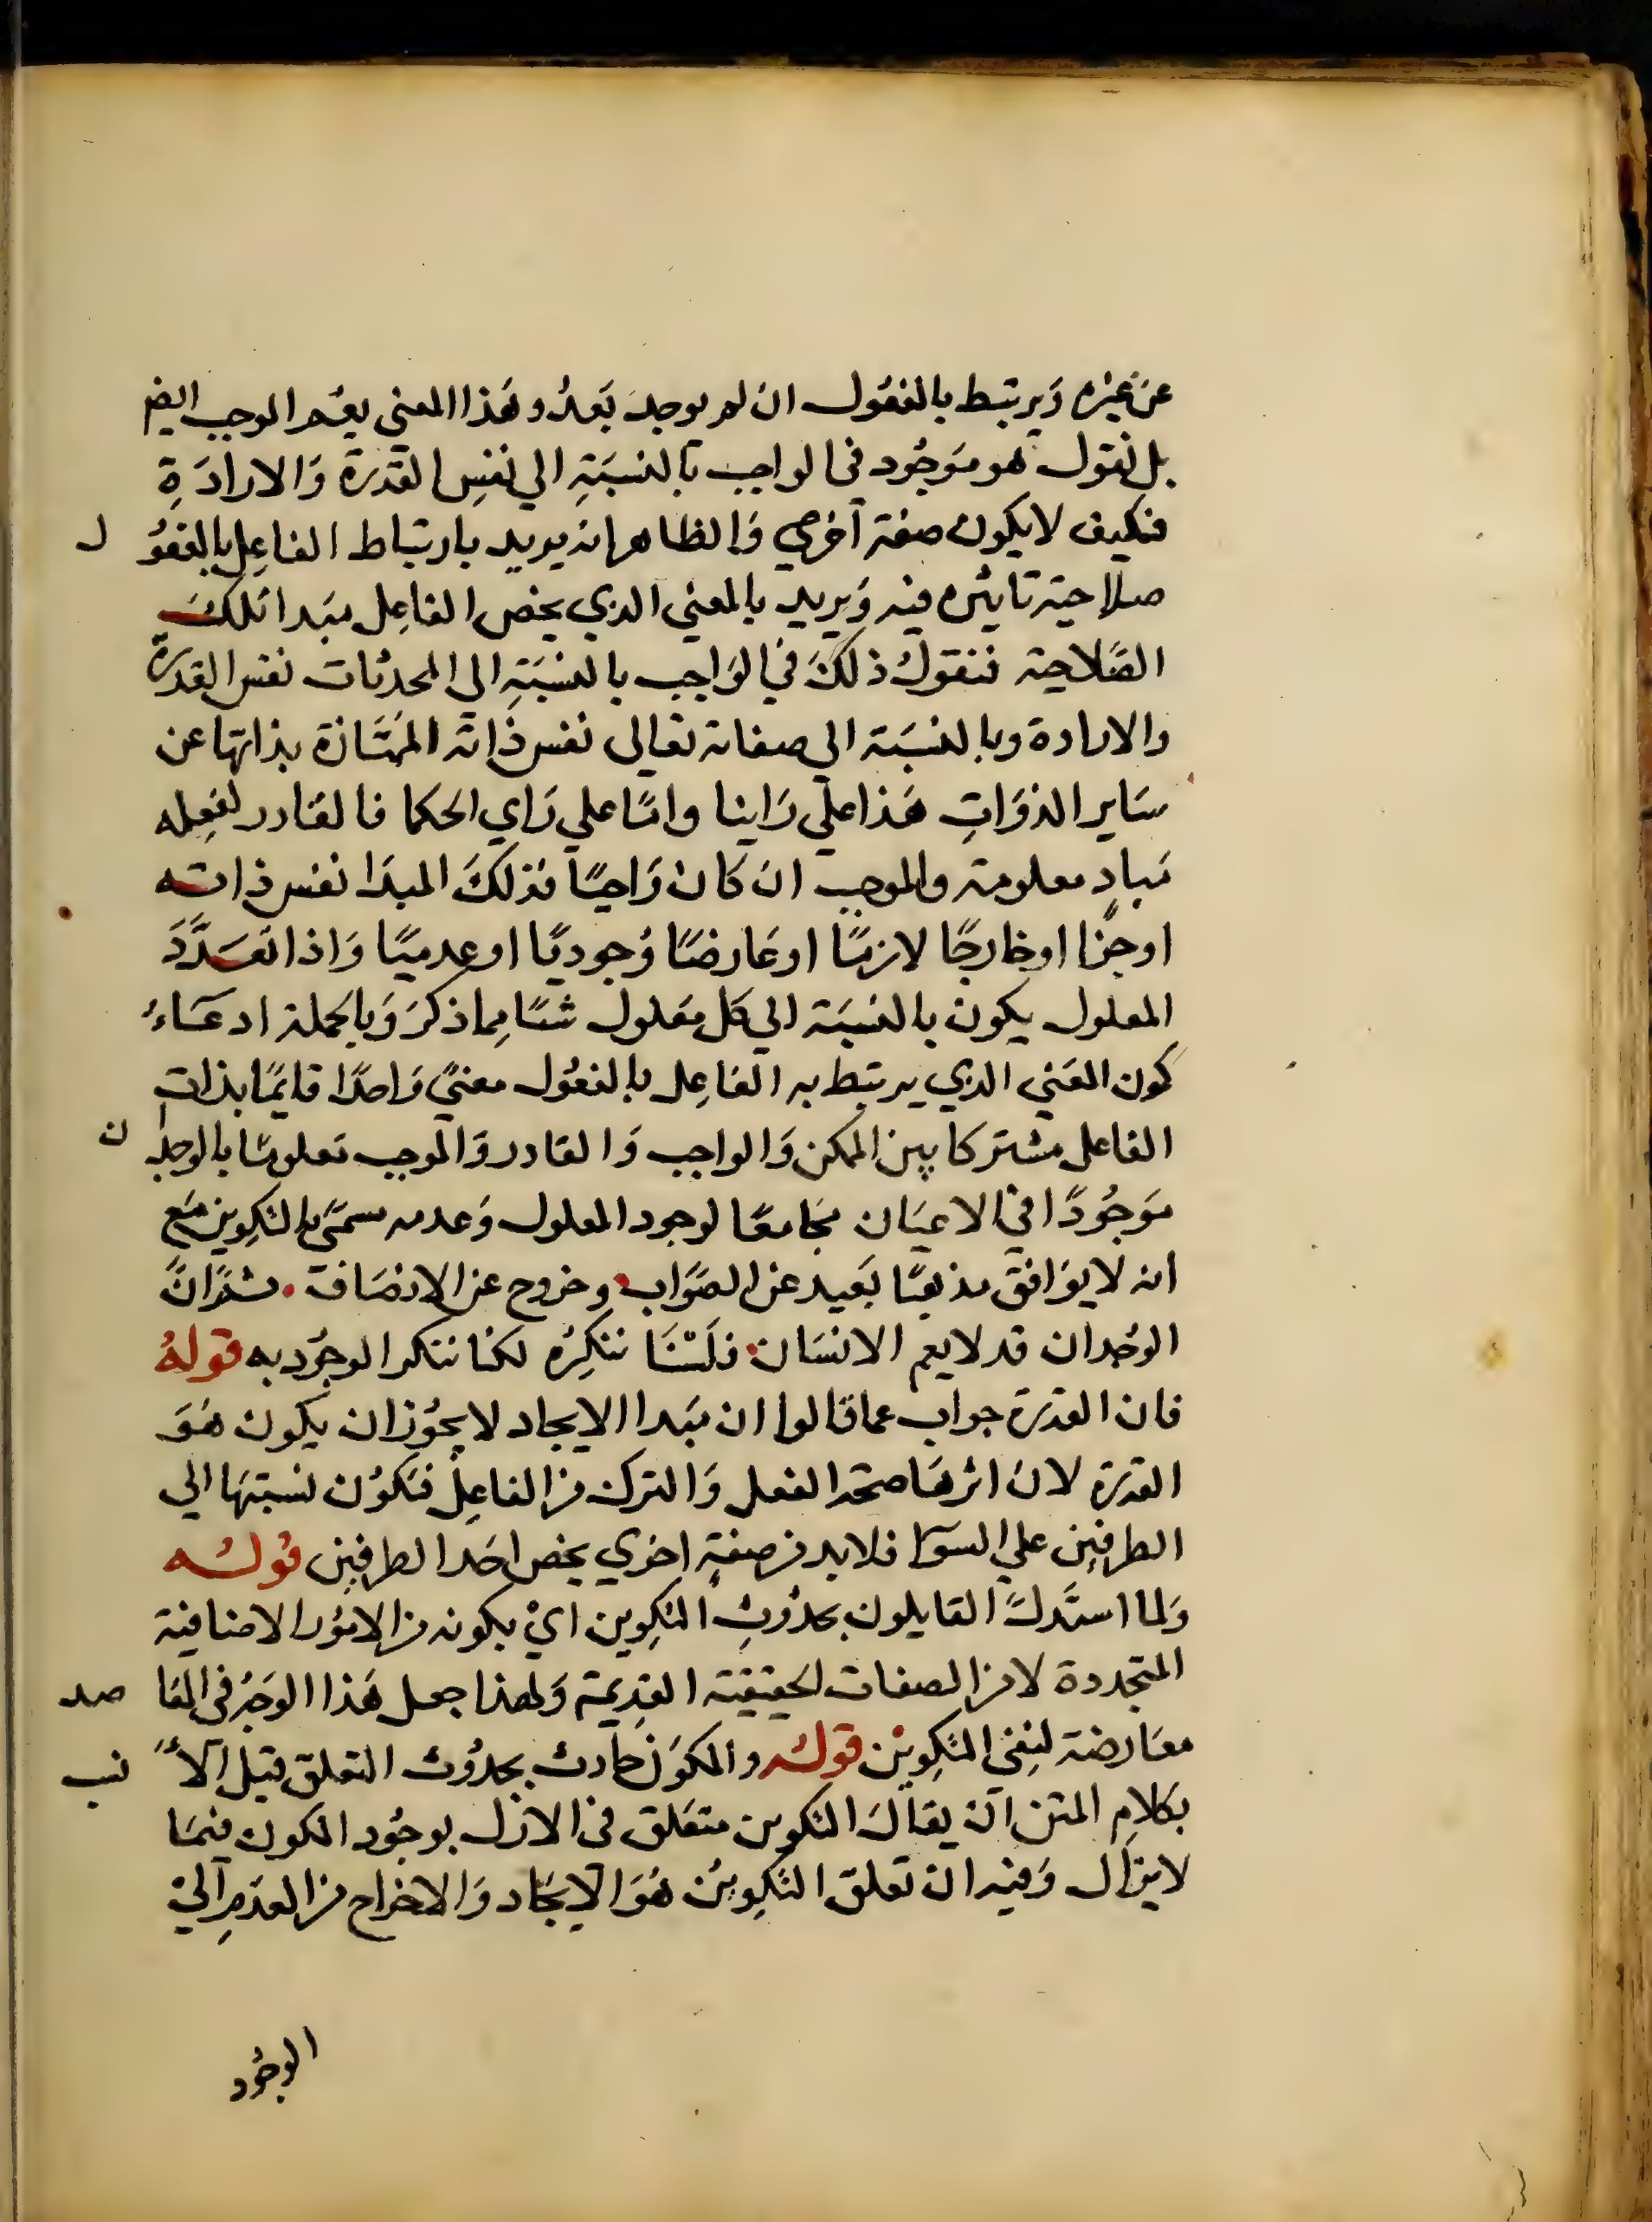 عن غيره ويرتبط بالمفعول ان لم يوجد بعد وهذا المعني يعم الموجب ايض
بل نقول هو موجود في الواجب بالنسبة الي نفس القدرة والارادة
فكيف لا يكون صفة اخري والظاهر انه يريد بارتباط الفاعل بالمفعو ل
صلاحية تاثيره فيه ويريد بالمعني الذي يخص الفاعل مبدا تلك
الصلاحية فنقول ذلك في الواجب بالنسبة الي المحدثات نفس القدرة
والارادة وبالنسبة الي صفاته تعالي نفس ذاته الممتازة بذاتها عن
ساير الذوات هذا علي راينا واما علي راي الحكما فالقادر لفعله
مباد معلومة والموجب ان كان واجبا فذلك المبدا نفس ذاته
او جزا او خارجا لازما او عارضا وجوديا او عدميا واذا تعدد
المعلول يكون بالنسبة الي كل معلول شيا مما ذكر وبالجملة ادعاء
كون المعني الذي يرتبط به الفاعل بالمفعول معني واحدا قايما بذات
الفاعل مشتركا بين الممكن والواجب والقادر والموجب معلوما بالوجدا ن
موجودا في الاعيان مجامعا لوجود المعلول وعدمه مسمي بالتكوين مع
انه لا يوافق مذهبا بعيد عن الصواب وخروج عن الانصاف. ثم ان
الوجدان قد لا يعم الانسان فلسنا ننكره لكنا ننكر الوجود به قوله
فان القدرة جواب عما قالوا ان مبدا الايجاد لا يجوز ان يكون هو
القدرة لان اثرها صحة الفعل والترك من الفاعل فتكون نسبتها الي
الطرفين علي السوا فلا بد من صفة اخري يخص احد الطرفين قوله
ولما استدل القايلون بحدوث التكوين اي بكونه من الامور الاضافية
المتجددة لا من الصفات الحقيقية القديمة ولهذا جعل هذا الوجه في المقا صد
معارضة لنفي التكوين قوله والمكون حادث بحدوث التعلق قيل الا نسب
بكلام المتن ان يقال التكوين متعلق في الازل بوجود المكون فيما
لا يزال وفيه ان تعلق التكوين هو الايجاد والاخراج من العدم الي
الوجود